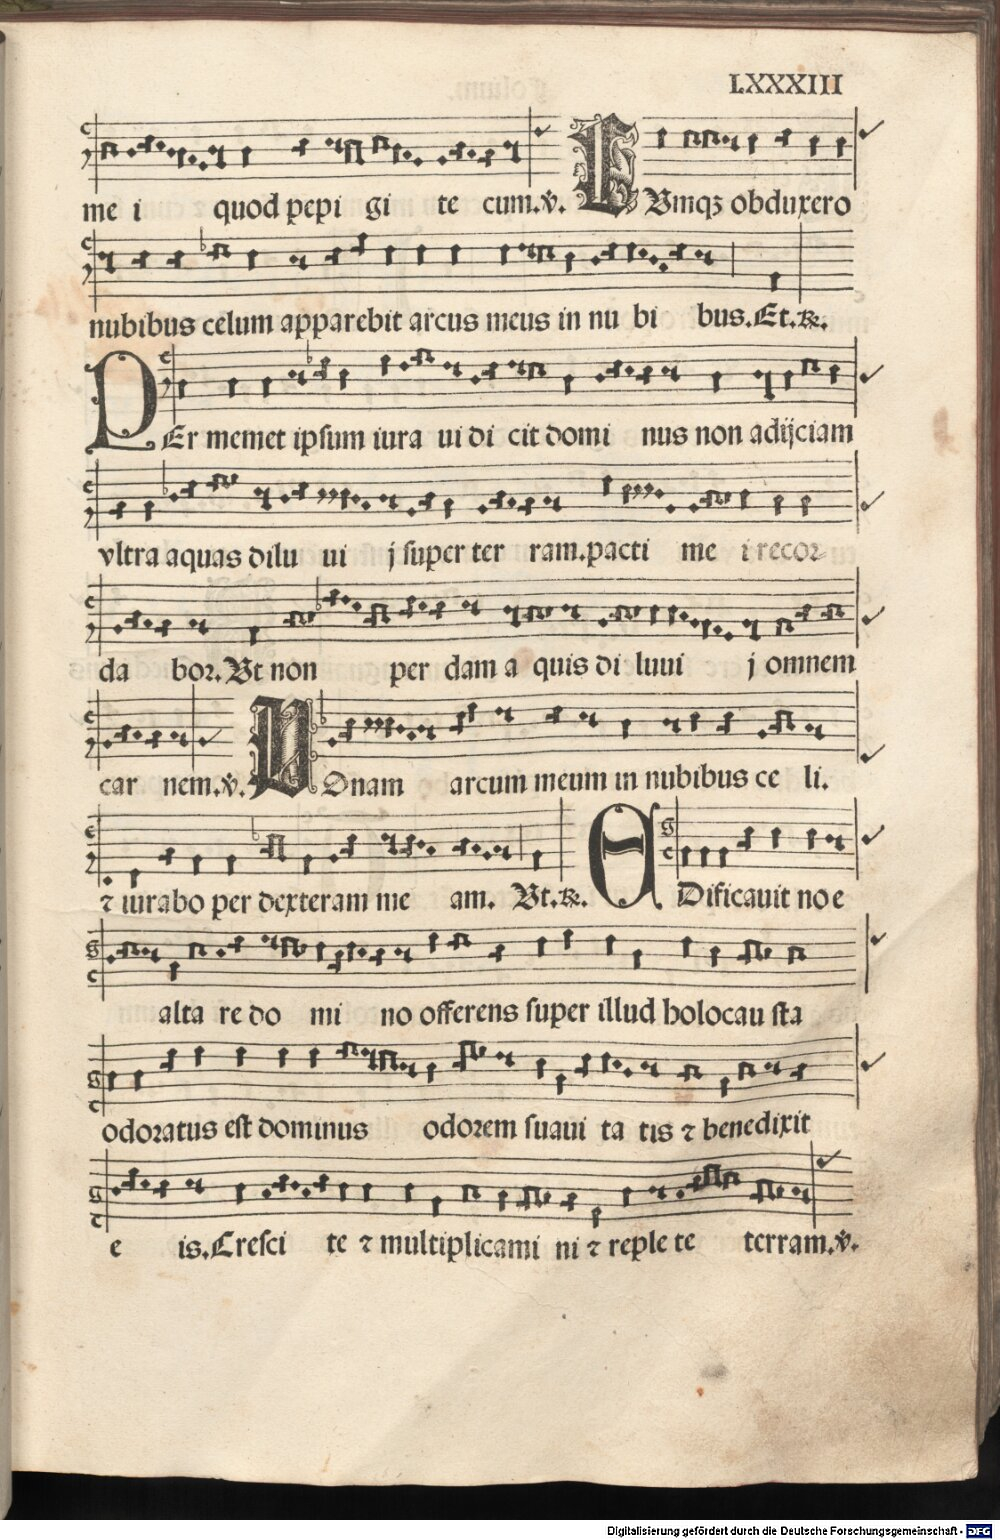 LXXXIII
me i quod pepi gi te cum.℣. CVmqꝫ obduxero
nubibus celum apparebit arcus meus in nu bi bus.Et.℟.
PEr memet ipsum iura ui di cit domi nus non adijciam
vltra aquas dilu ui j super ter ram.pacti me i recor
da bor.Vt non per dam a quis di luui j omnem
car nem.℣. POnam arcum meum in nubibus ce li.
⁊ iurabo per dexteram me am. Vt.℟. EDificauit no e
alta re do mi no offerens super illud holocau sta
odoratus est dominus odorem suaui ta tis ⁊ benedixit
e is.Cresci te ⁊ multiplicami ni ⁊ reple te terram.℣.
Digitalisierung gefördert durch die Deutsche Forschungsgemeinschaft - DFG